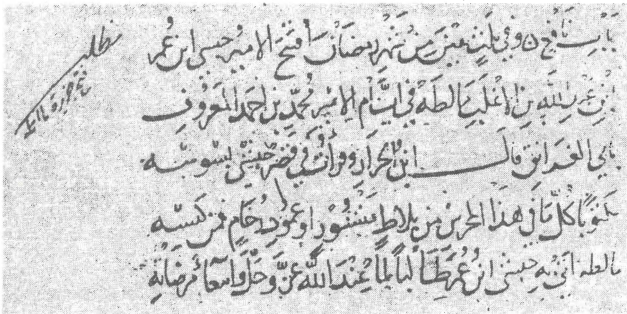 مطلب
فتح جزيرة مالطه
وفي ثلث بقين من شهر رمضان افتتح الامير حبشي ابن عمر
ابن عبد الله بن الاغلب مالطه في ايام الامير محمد بن احمد المعروف
بابي الغرانق قال ابن الجزار وقرات في قصر حبشي بسوسه
مكتوبا كل ما في هذا من بلاط منشور او عمود رخام فمن كنيسه
مالطه اتى به حبشي ابن عمر طالبا لما عند الله عز وجل مرضاته